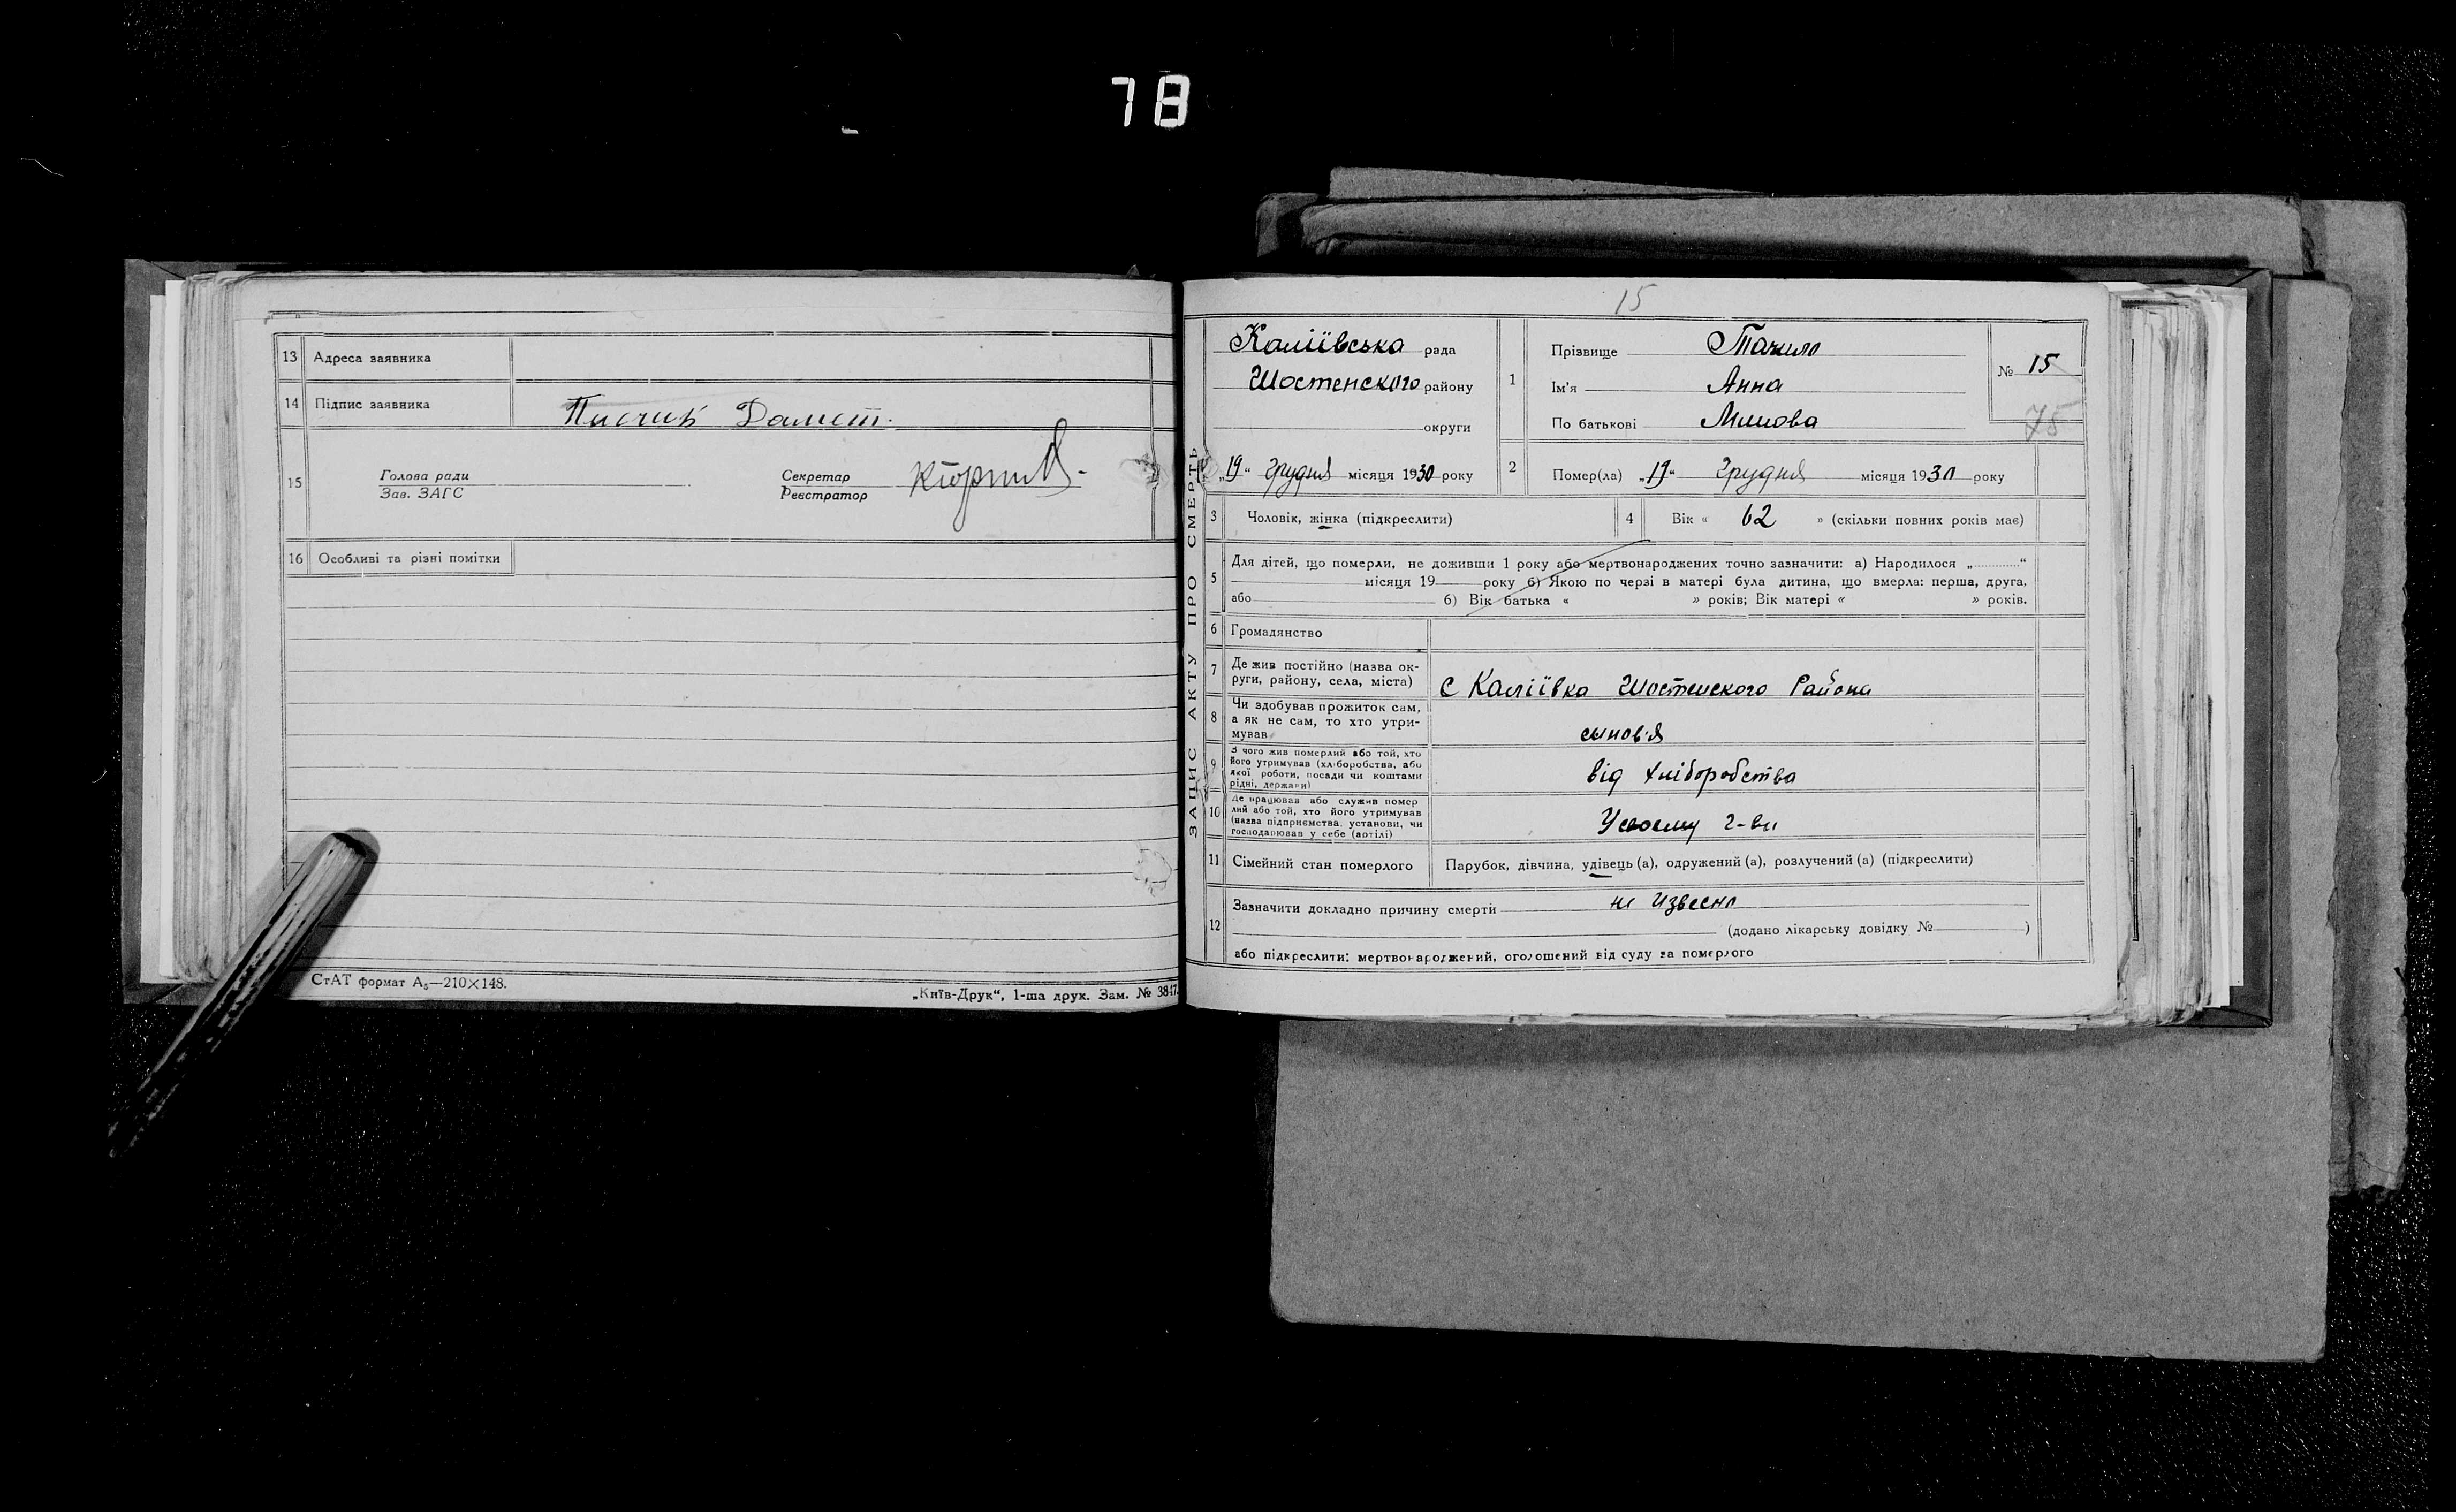 78
13 Адреса заявника
14 Підпис заявника
15 Голова ради
Зав. ЗАГС
Секретар
Реєстратор
16 Особливі та різні помітки
СтАТ формат А₅—210×148.
„Київ-Друк“, 1-ша друк. Зам. № 3847.
15
ЗАПИС АКТУ ПРО СМЕРТЬ
Каліївська рада
Шостенского району
округи
„19“ грудня місяця 1930 року
1 Прізвище
Ім'я Анна
По батькові
№ 15
75
2 Помер(ла) „19“ грудня місяця 1930 року
3 Чоловік, жінка (підкреслити)
4 Вік « 62 » (скільки повних років має)
5 Для дітей, що померли, не доживши 1 року або мертвонароджених точно зазначити: а) Народилося „ “
місяця 19 року б) Якою по черзі в матері була дитина, що вмерла: перша, друга,
або б) Вік батька « » років; Вік матері « » років.
6 Громадянство
7 Де жив постійно (назва ок-
руги, району, села, міста) с Каліївка Шостенского Района
8 Чи здобував прожиток сам,
а як не сам, то хто утри-
мував сынов'я
9 З чого жив померлий або той, хто
його утримував (хліборобства, або
якої роботи, посади чи коштами
рідні, держави) від хліборобства
10 Де працював або служив помер
лий або той, хто його утримував
(назва підприємства, установи, чи
господарював у себе (артілі) У своему г-ви
11 Сімейний стан померлого Парубок, дівчина, удівець (а), одружений (а), розлучений (а) (підкреслити)
12 Зазначити докладно причину смерти не извесно
(додано лікарську довідку № )
або підкреслити: мертвонароджений, оголошений від суду за померлого